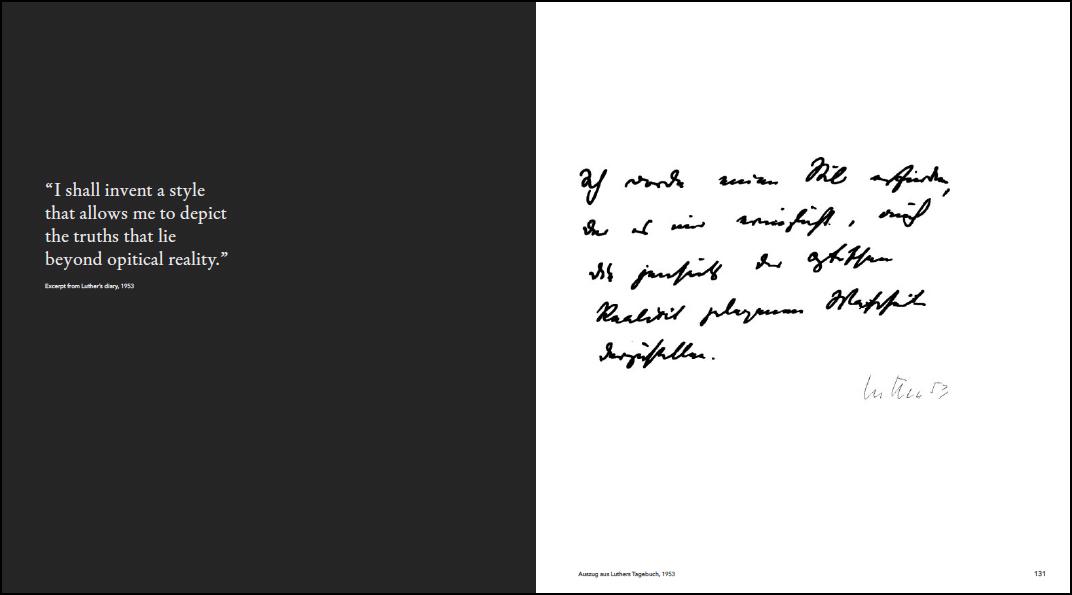 “I shall invent a style
that allows me to depict
the truths that lie
beyond opitical reality.”
Excerpt from Luther's diary, 1953
Ich werde einen Stil erfinden,
der es mir ermöglicht, auch
die jenseits der optischen
Realität gelegenen Wahrheit
darzustellen.
Luther 53
Auszug aus Luthers Tagebuch, 1953
131